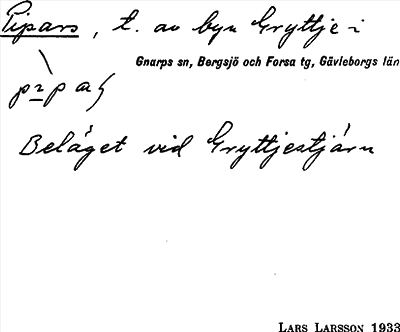 Pipars, t. av byn Gryttje i
Gnarps sn, Bergsjö och Forsa tg, Gävleborgs län
Beläget vid Gryttjestjärn
LARS LARSSON 1933